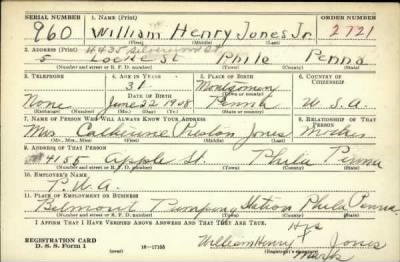 SERIAL NUMBER 1. NAME (Print) ORDER NUMBER
960 William Henry Jones Jr. 2721
(First) (Middle) (Last)
2. ADDRESS (Print) 4435
5 Locke St Phila Penna
(Number and street or R. F. D. number) (Town) (County) (State)
3. TELEPHONE 4. AGE IN YEARS 5. PLACE OF BIRTH 6. COUNTRY OF CITIZENSHIP
DATE OF BIRTH
None June 22 1908 Montgomery Penna U.S.A.
7. NAME OF PERSON WHO WILL ALWAYS KNOW YOUR ADDRESS 8. RELATIONSHIP OF THAT PERSON
Mrs Catherine Preston Jones Mother
(Mr., Mrs., Miss) (First) (Middle) (Last)
9. ADDRESS OF THAT PERSON
4155 Apple St. Phila Penna
(Number and street or R. F. D. number) (Town) (County) (State)
10. EMPLOYER'S NAME
11. PLACE OF EMPLOYMENT OR BUSINESS
Belmont Pumping Station Phila Penna.
(Number and street or R. F. D. number) (Town) (County) (State)
I AFFIRM THAT I HAVE VERIFIED ABOVE ANSWERS AND THAT THEY ARE TRUE.
REGISTRATION CARD
D. S. S. Form 1 16—17105
His
William Henry X Jones
Mark